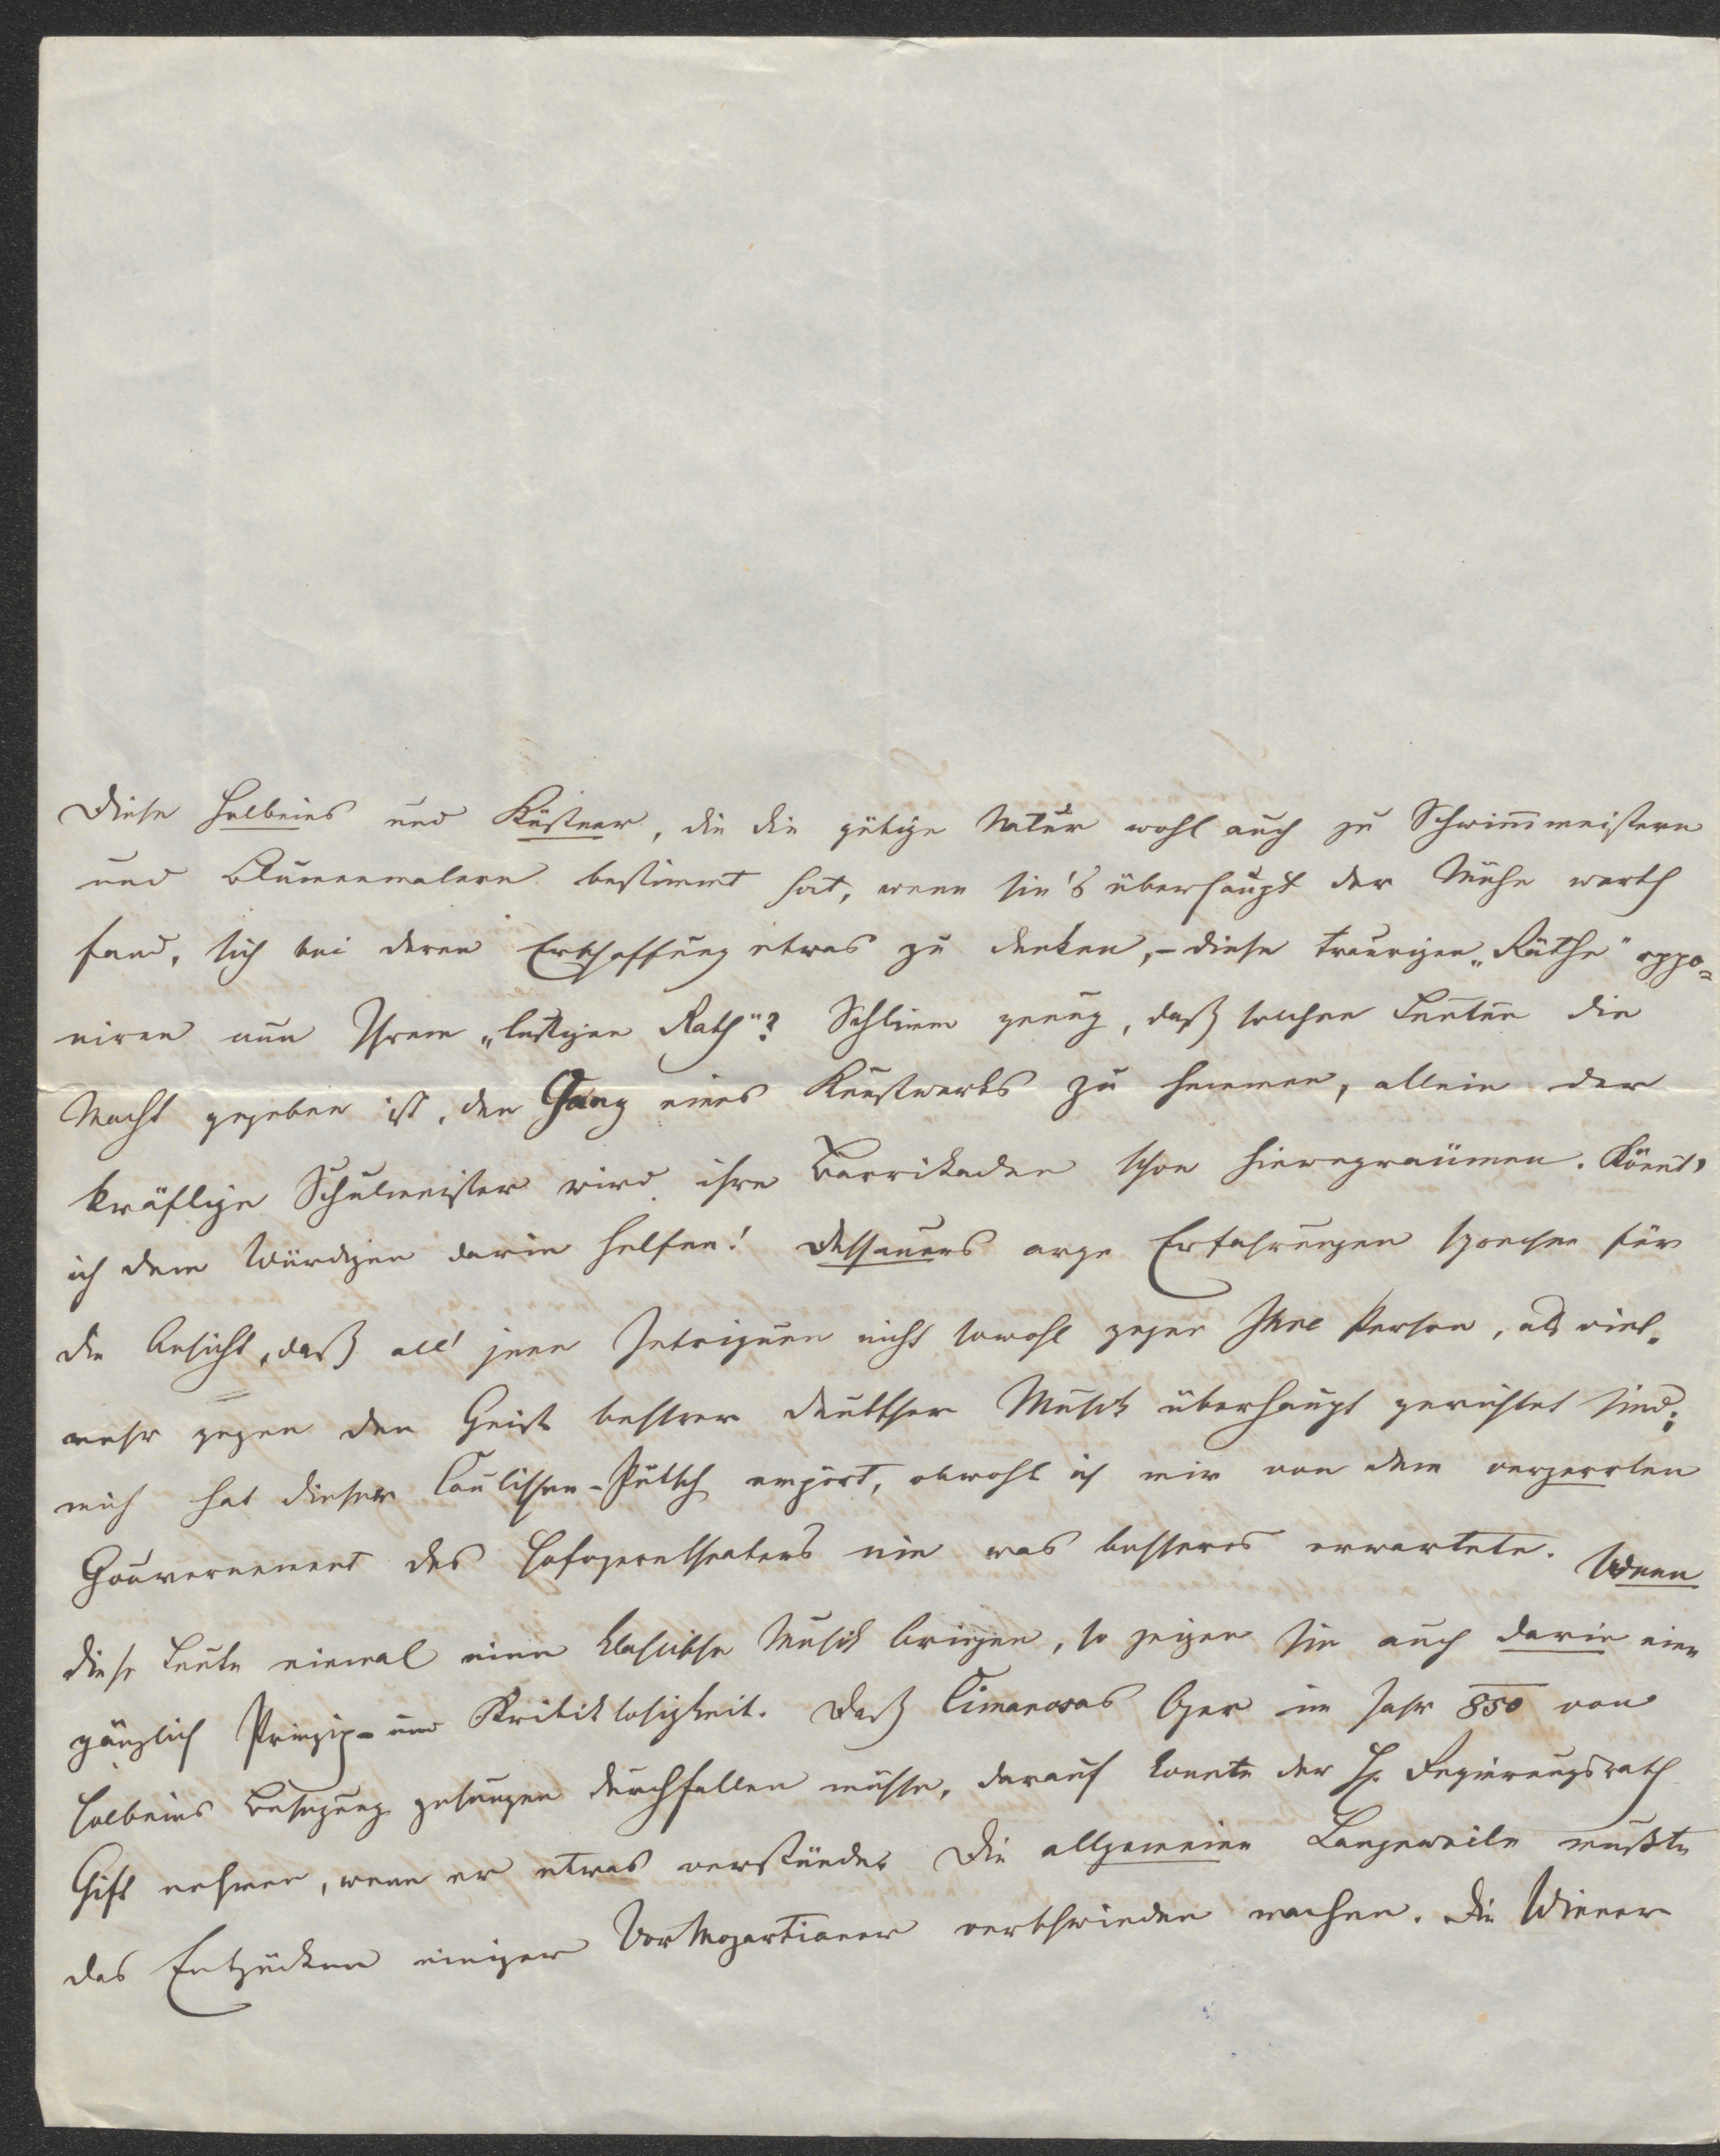 Diese Holbeins und Küstner, die die gütige Natur wohl auch zu Schwimmeistern
und Blumenmalern bestimmt hat, wenn sie's überhaupt der Mühe werth
fand, sich bei deren Erschaffung etwas zu denken, – diese traurigen „Räthe" oppo=
niren nun Ihrem „lustigen Rath"? Schlimm genug, daß solchen Leuten die
Macht gegeben ist, den Gang eines Kunstwerks zu hemmen, allein der
kräftige Schulmeister wird ihre Barrikaden schon hinwegräumen. Könnt'
ich dem Würdigen darin helfen! Dessauers arge Erfahrungen sprechen für
die Ansicht, daß all' jene Intriguen nicht sowohl gegen Ihre Person, als viel=
mehr gegen den Geist bessrer deutscher Musik überhaupt gerichtet sind;
mich hat dieser Coulissen-Putsch empört, obwohl ich mir von dem verzerrten
Gouvernement des Hofoperntheaters nie was besseres erwartete. Wenn
diese Leute einmal eine klassische Musik bringen, so zeigen sie auch darin eine
gänzlich Prinzip- und Kritiklosigkeit. Daß Cimarosas Oper im Jahr 850 von
Holbeins Besetzung gesungen durchfallen müsse, darauf konnte der H. Regierungsrath
Gift nehmen, wenn er etwas verstünde. Die allgemeine Langeweile mußte
das Entzücken einiger VorMozartianer verschwinden machen. Die Wiener